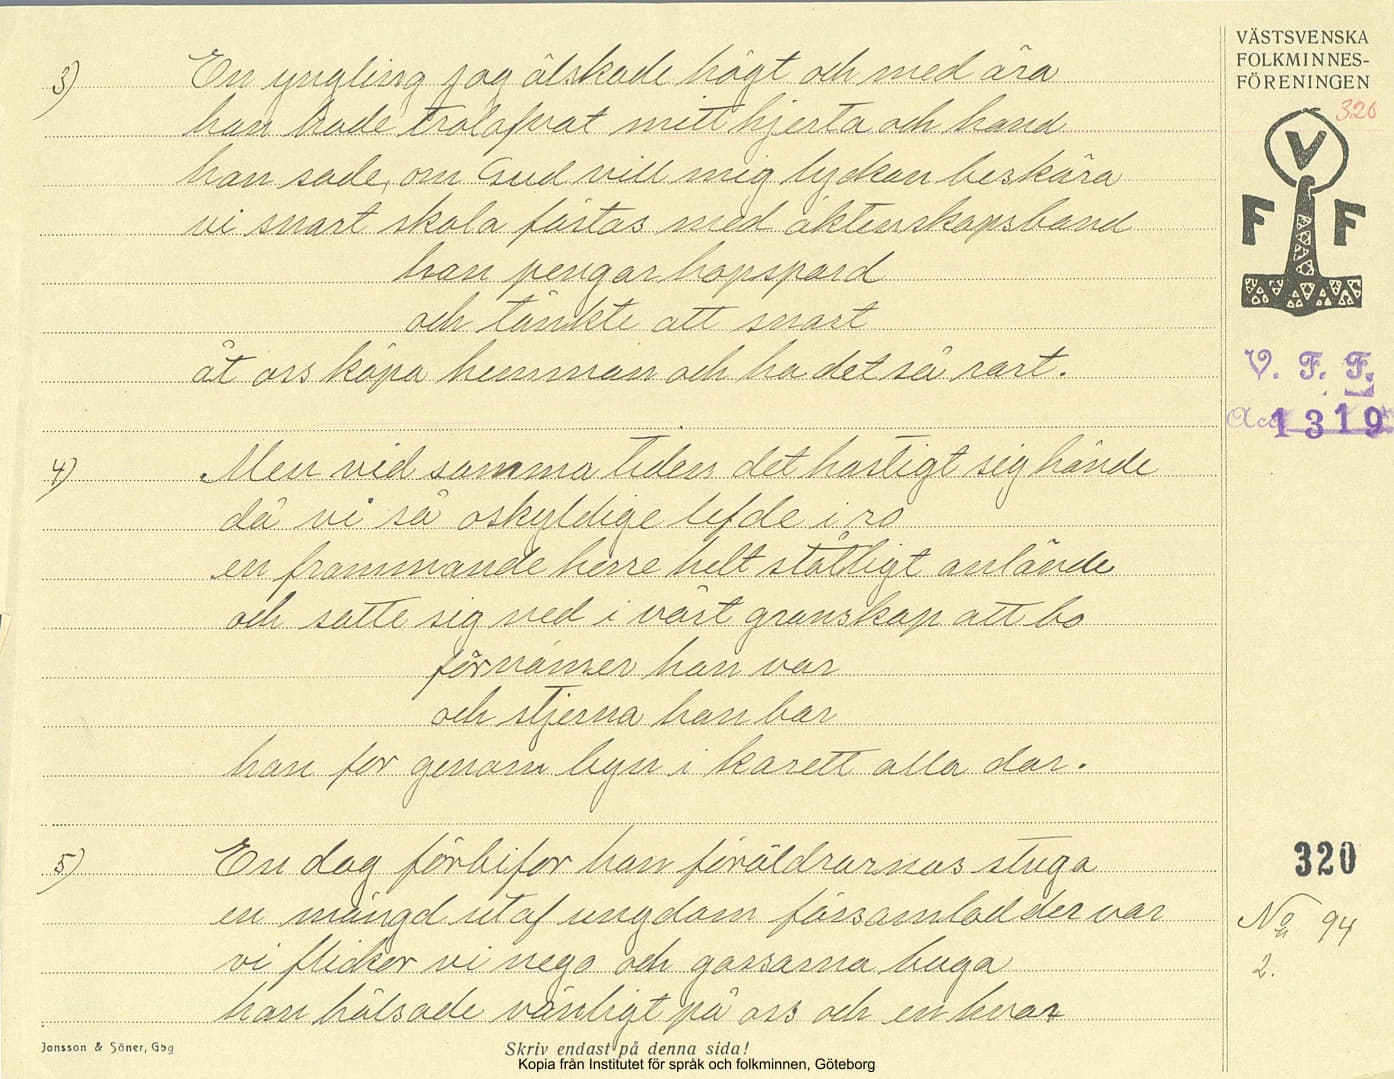 VÄSTSVENSKA
FOLKMINNES-
FÖRENINGEN
320
V
F F
V. F. F.
Acc 1319
3) En yngling jag älskade högt och med ära
han hade trolofvat mitt hjerta och hand
han sade, om Gud vill mig lyckan beskära
vi snart skola fästas med äktenskapsband
han pengar hopspard
och tänkte att snart
åt oss köpa hemman och ha det så rart.
4) Men vid samma tiden det hastigt sig hände
då vi så oskyldige lefde i ro
en frammande herre helt ståtligt anlände
och satte sig ned i vårt granskap att bo
förnämer han var
och stjerna han bar
han for genom byn i karett alla dar.
5) En dag förbifor han föräldrarnas stuga
en mängd utaf ungdom församlad der var
vi flickor vi nego och gossarna buga
han hälsade vänligt på oss och en hvar
320
No 94
2.
Jonsson & Söner, Gbg
Skriv endast på denna sida!
Kopia från Institutet för språk och folkminnen, Göteborg